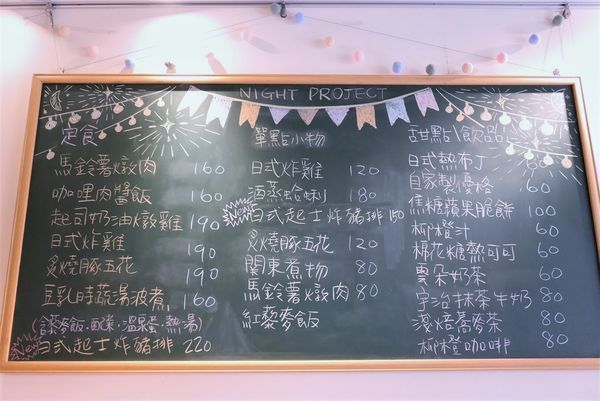 NIGHT PROJECT
定食
馬鈴薯燉肉 160
咖哩肉醬飯 160
起司奶油燉雞 190
日式炸雞 190
炙燒豚五花 190
豆乳時蔬湯波煮 160
麥飯·配菜·溫泉蛋·熱湯)
日式起士炸豬排 220
單點小物
日式炸雞 120
酒蒸蛤蜊 180
日式起士炸豬排 150
炙燒豚五花 120
關東煮物 80
馬鈴薯燉肉 80
紅藜麥飯
甜點\飲品
日式熱布丁
自家製優格 60
焦糖蘋果脆餅 100
柳橙汁 60
棉花糖熱可可 60
雲朵奶茶 60
宇治抹茶牛奶 80
淺焙蕎麥茶 80
柳橙咖啡 80